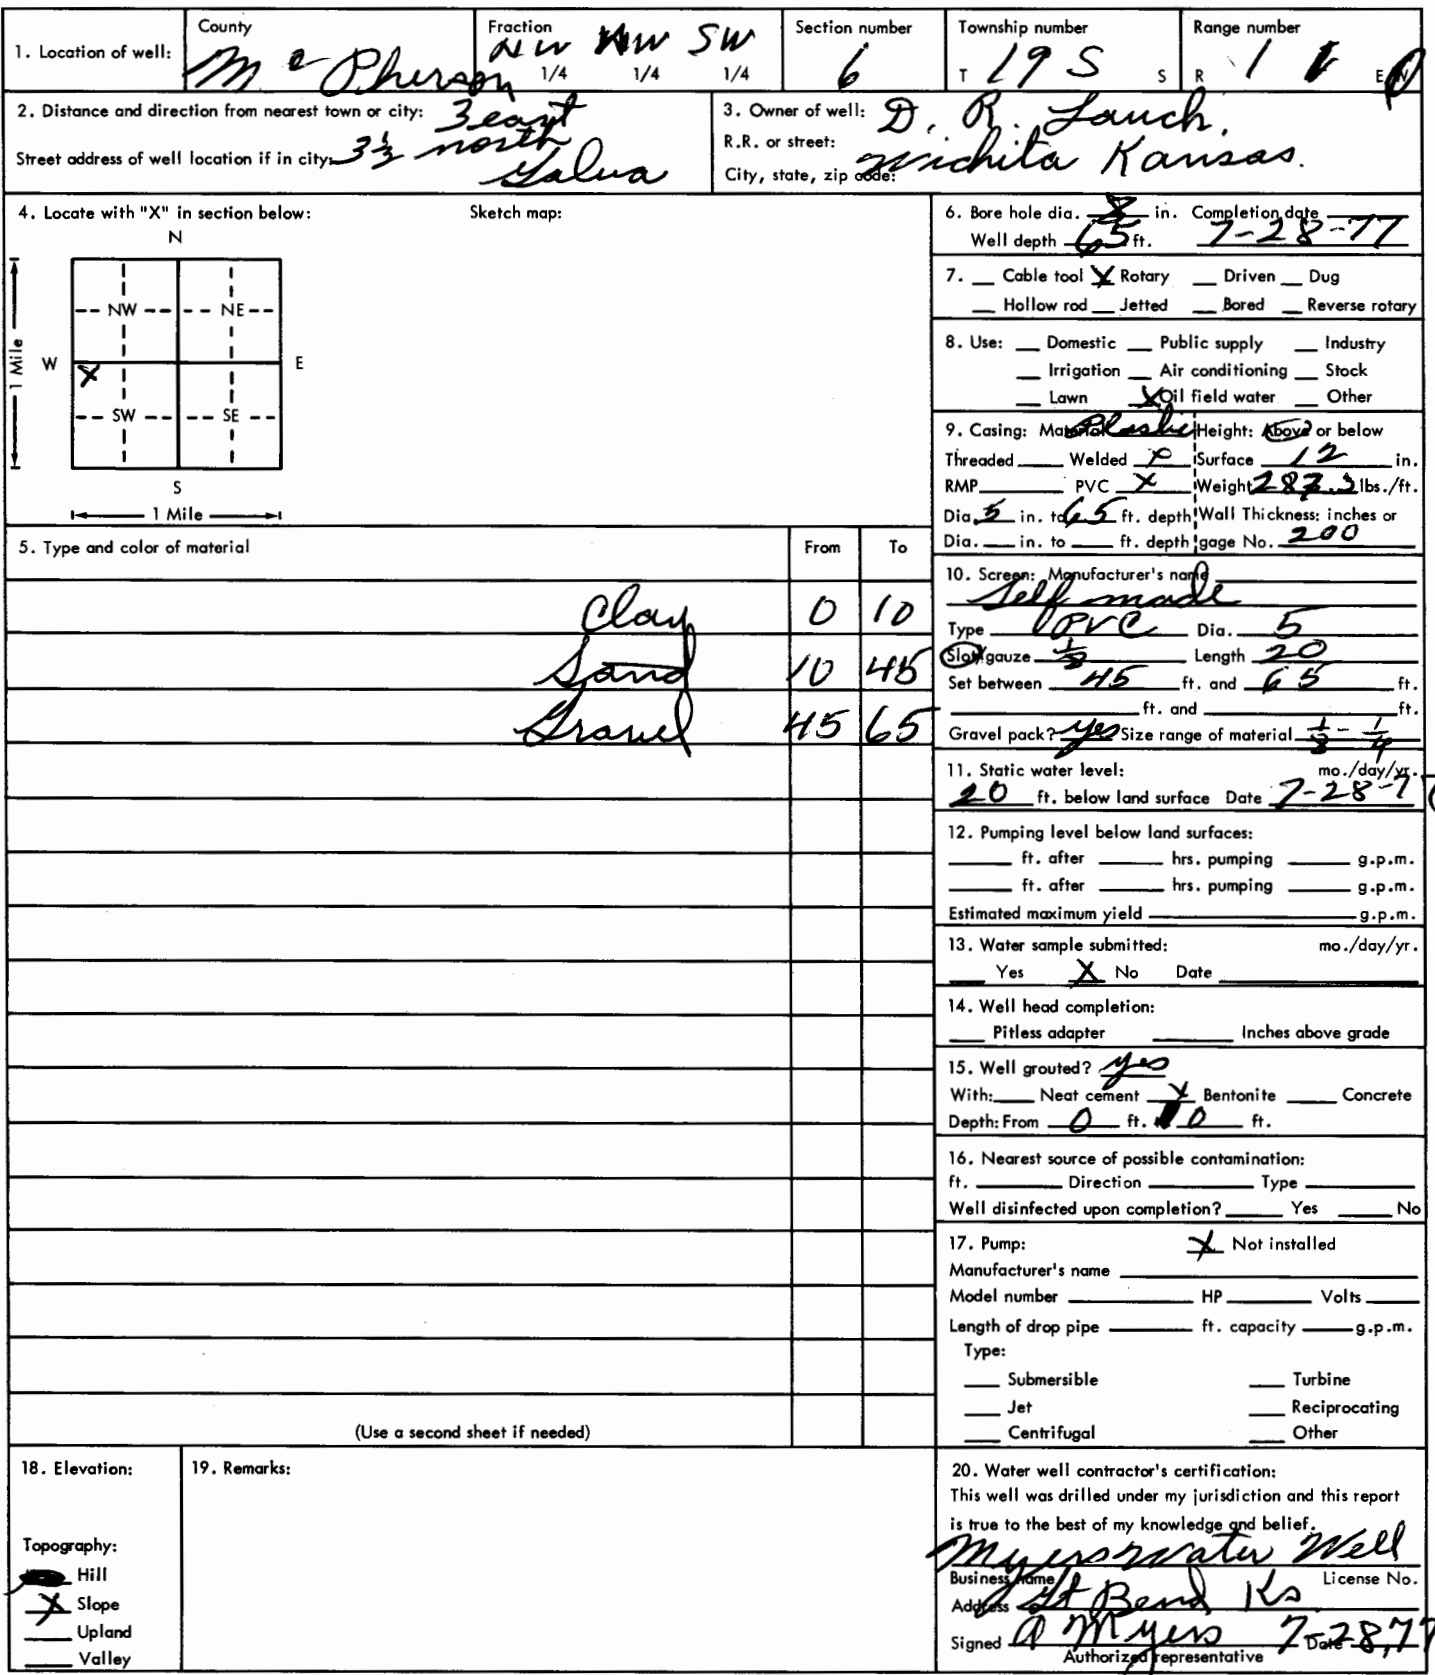 1. Location of well:
County
Mc Pherson
Fraction
NW NW SW
1/4 1/4 1/4
Section number
6
Township number
T 19 S S
Range number
R 1 E W
2. Distance and direction from nearest town or city: 3 east
Street address of well location if in city: 3 1/2 north
Galva
3. Owner of well: D. R. Lauch.
R.R. or street:
City, state, zip code: Wichita Kansas.
4. Locate with "X" in section below: Sketch map:
N
NW NE
1 Mile W X E
SW SE
S
1 Mile
5. Type and color of material From To
Clay 0 10
Sand 10 45
Gravel 45 65
(Use a second sheet if needed)
6. Bore hole dia. 8 in. Completion date
Well depth 65 ft. 7-28-77
7. __ Cable tool X Rotary __ Driven __ Dug
__ Hollow rod __ Jetted __ Bored __ Reverse rotary
8. Use: __ Domestic __ Public supply __ Industry
__ Irrigation __ Air conditioning __ Stock
__ Lawn X Oil field water __ Other
9. Casing: Material Plastic Height: Above or below
Threaded ____ Welded X Surface 12 in.
RMP ____ PVC X Weight lbs./ft.
Dia. 5 in. to 65 ft. depth Wall Thickness: inches or
Dia. __ in. to __ ft. depth gage No. 200
10. Screen: Manufacturer's name
Self made
Type PVC Dia. 5
Slot/gauze Length 20
Set between 45 ft. and 65 ft.
____ ft. and ____ ft.
Gravel pack? yes Size range of material 1/8 - 1/4
11. Static water level: mo./day/yr.
20 ft. below land surface Date 7-28-77
12. Pumping level below land surfaces:
____ ft. after ____ hrs. pumping ____ g.p.m.
____ ft. after ____ hrs. pumping ____ g.p.m.
Estimated maximum yield ____ g.p.m.
13. Water sample submitted: mo./day/yr.
__ Yes X No Date ____
14. Well head completion:
__ Pitless adapter ____ Inches above grade
15. Well grouted? yes
With: __ Neat cement X Bentonite __ Concrete
Depth: From 0 ft. 10 ft.
16. Nearest source of possible contamination:
ft. ____ Direction ____ Type ____
Well disinfected upon completion? ____ Yes ____ No
17. Pump: X Not installed
Manufacturer's name ____
Model number ____ HP ____ Volts ____
Length of drop pipe ____ ft. capacity ____ g.p.m.
Type:
__ Submersible __ Turbine
__ Jet __ Reciprocating
__ Centrifugal __ Other
18. Elevation:
Topography:
Hill
X Slope
__ Upland
__ Valley
19. Remarks:
20. Water well contractor's certification:
This well was drilled under my jurisdiction and this report
is true to the best of my knowledge and belief.
Myers Water Well
Business name License No.
Address Gt Bend Ks
Signed A Myers 7-28,77 Date
Authorized representative